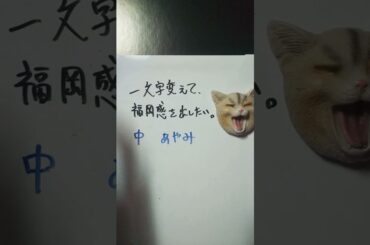 一文字変えて、
福岡感を出したい。
中 あやみ